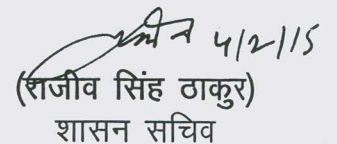 4/2/15
(राजीव सिंह ठाकुर)
शासन सचिव